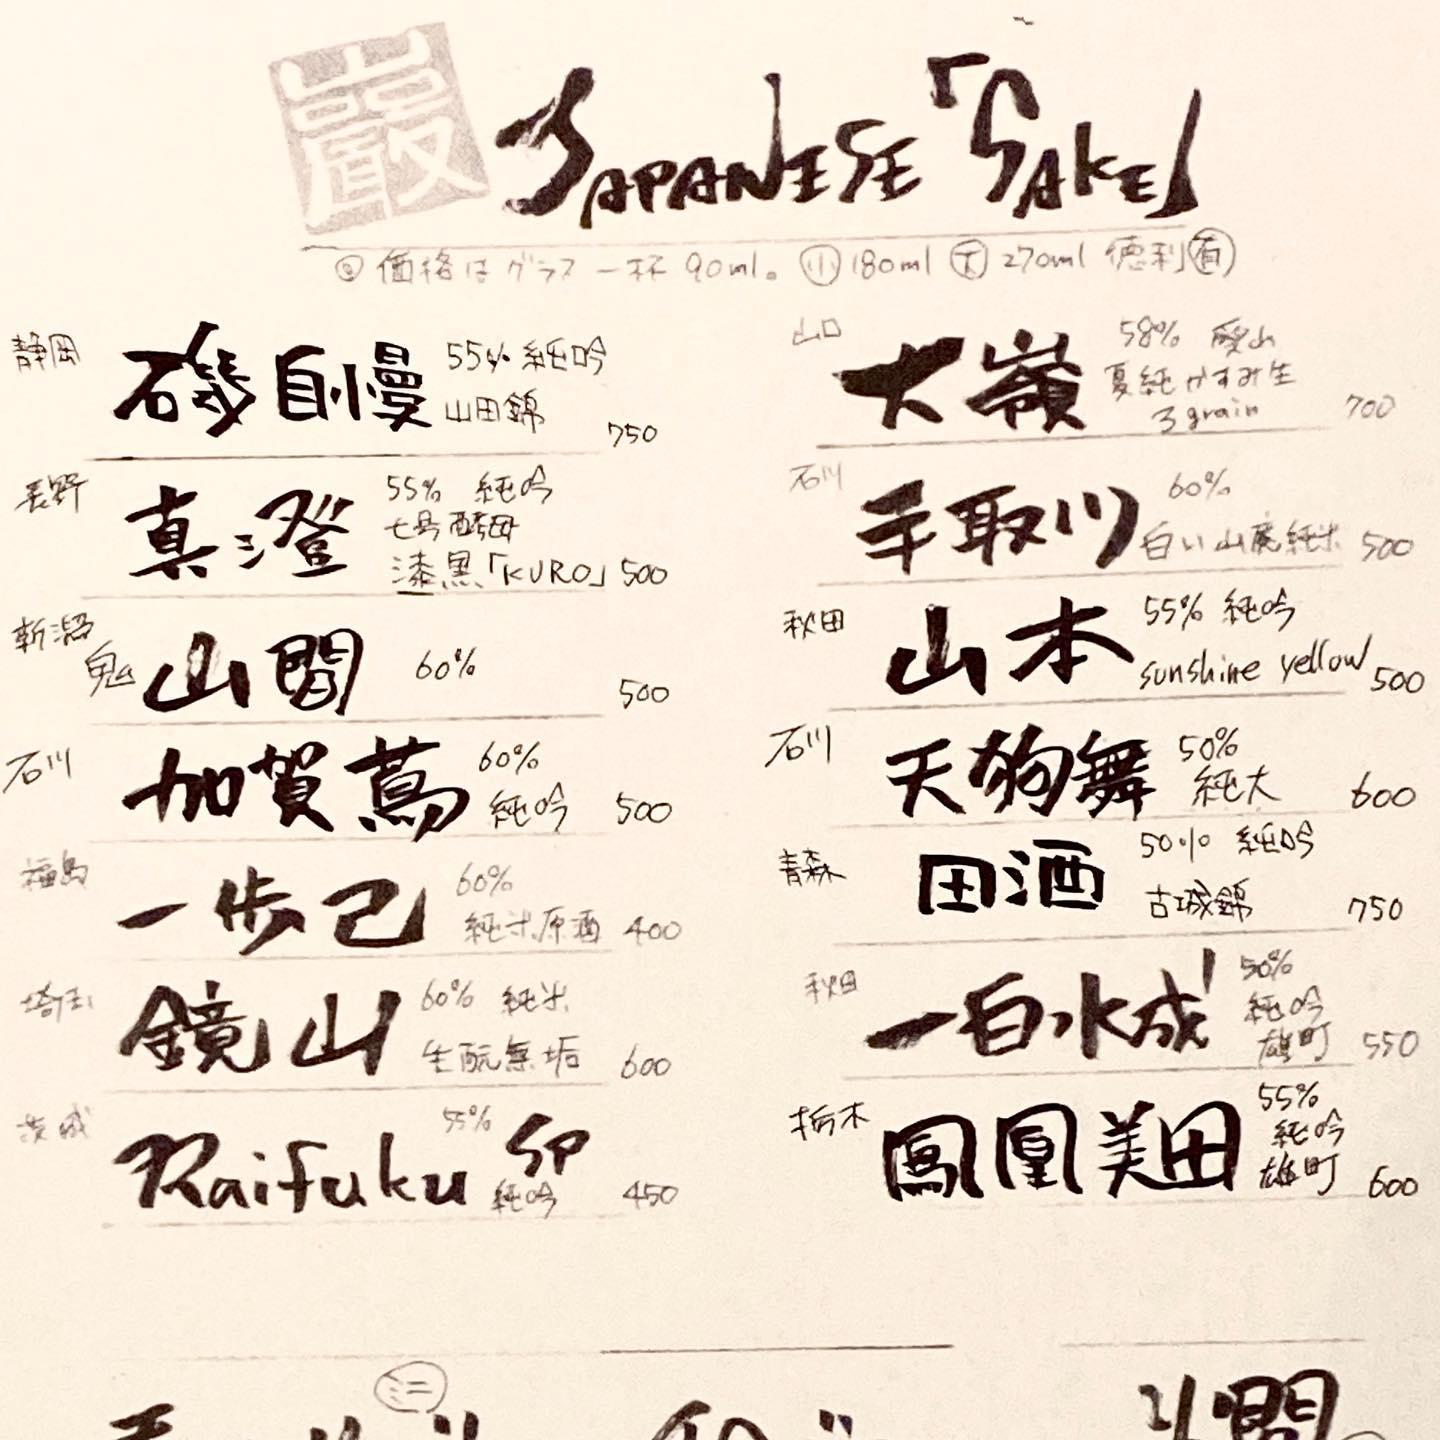 巌
JAPANESE「SAKE」
価格はグラス一杯 90ml。 小 180ml 大 270ml 徳利有
静岡 磯自慢 55% 純吟
山田錦 750
長野 真澄 55% 純吟
七号酵母
漆黒「KURO」 500
新潟 鬼山間 60% 500
石川 加賀蔦 60%
純吟 500
福島 一歩己 60%
純米原酒 400
埼玉 鏡山 60% 純米
生酛無垢 600
茨城 Raifuku 55%
純吟 450
山口 大嶺 58% 愛山
夏純かすみ生
3grain 700
石川 手取川 60%
白い山廃純米 500
秋田 山本 55% 純吟
sunshine yellow 500
石川 天狗舞 50%
純大 600
青森 田酒 50% 純吟
古城錦 750
秋田 一白水成 50%
純吟
雄町 550
栃木 鳳凰美田 55%
純吟
雄町 600